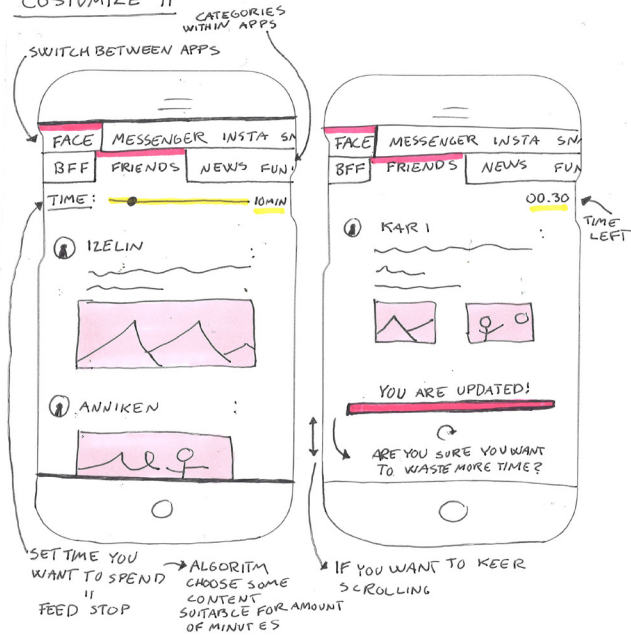 COSTUMIZE IT
CATEGORIES
WITHIN APPS
SWITCH BETWEEN APPS
FACE MESSENGER INSTA SN
BFF FRIENDS NEWS FUN
TIME: 10MIN
IZELIN
ANNIKEN
FACE MESSENGER INSTA SNA
BFF FRIENDS NEWS FUN
00.30
TIME
LEFT
KARI
YOU ARE UPDATED!
ARE YOU SURE YOU WANT
TO WASTE MORE TIME?
SET TIME YOU
WANT TO SPEND
=
FEED STOP
ALGORITM
CHOOSE SOME
CONTENT
SUITABLE FOR AMOUNT
OF MINUTES
IF YOU WANT TO KEEP
SCROLLING